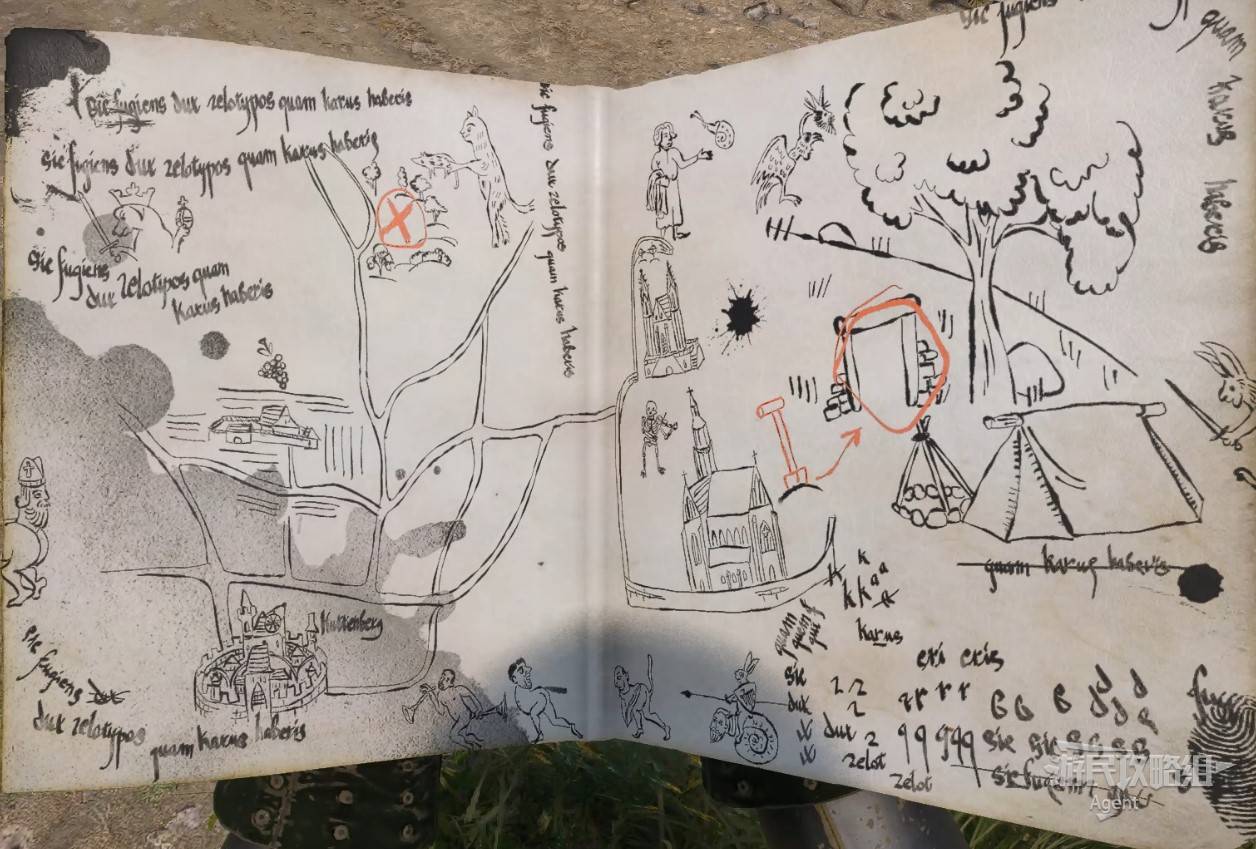 sic fugiens dux zelotypos quam karus haberis
sic fugiens dux zelotypos quam karus haberis
sic fugiens
dux zelotypos quam
karus haberis
sic fugiens dux zelotypos quam karus haberis
Kuttenberg
sic fugiens dux
dux zelotypos
quam karus haberis
sic fugiens
quam karus haberis
quam karus haberis
k
k k a a
karus
exi exis
sic
dux
dux
zelot
zelot
sic sic
sic fugiens
游民攻略组
Agent